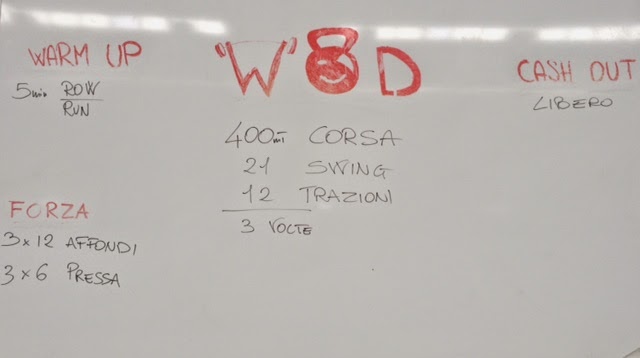 WARM UP
5 min ROW
RUN
FORZA
3x12 AFFONDI
3x6 PRESSA
"W"OD
400mt CORSA
21 SWING
12 TRAZIONI
3 VOLTE
CASH OUT
LIBERO